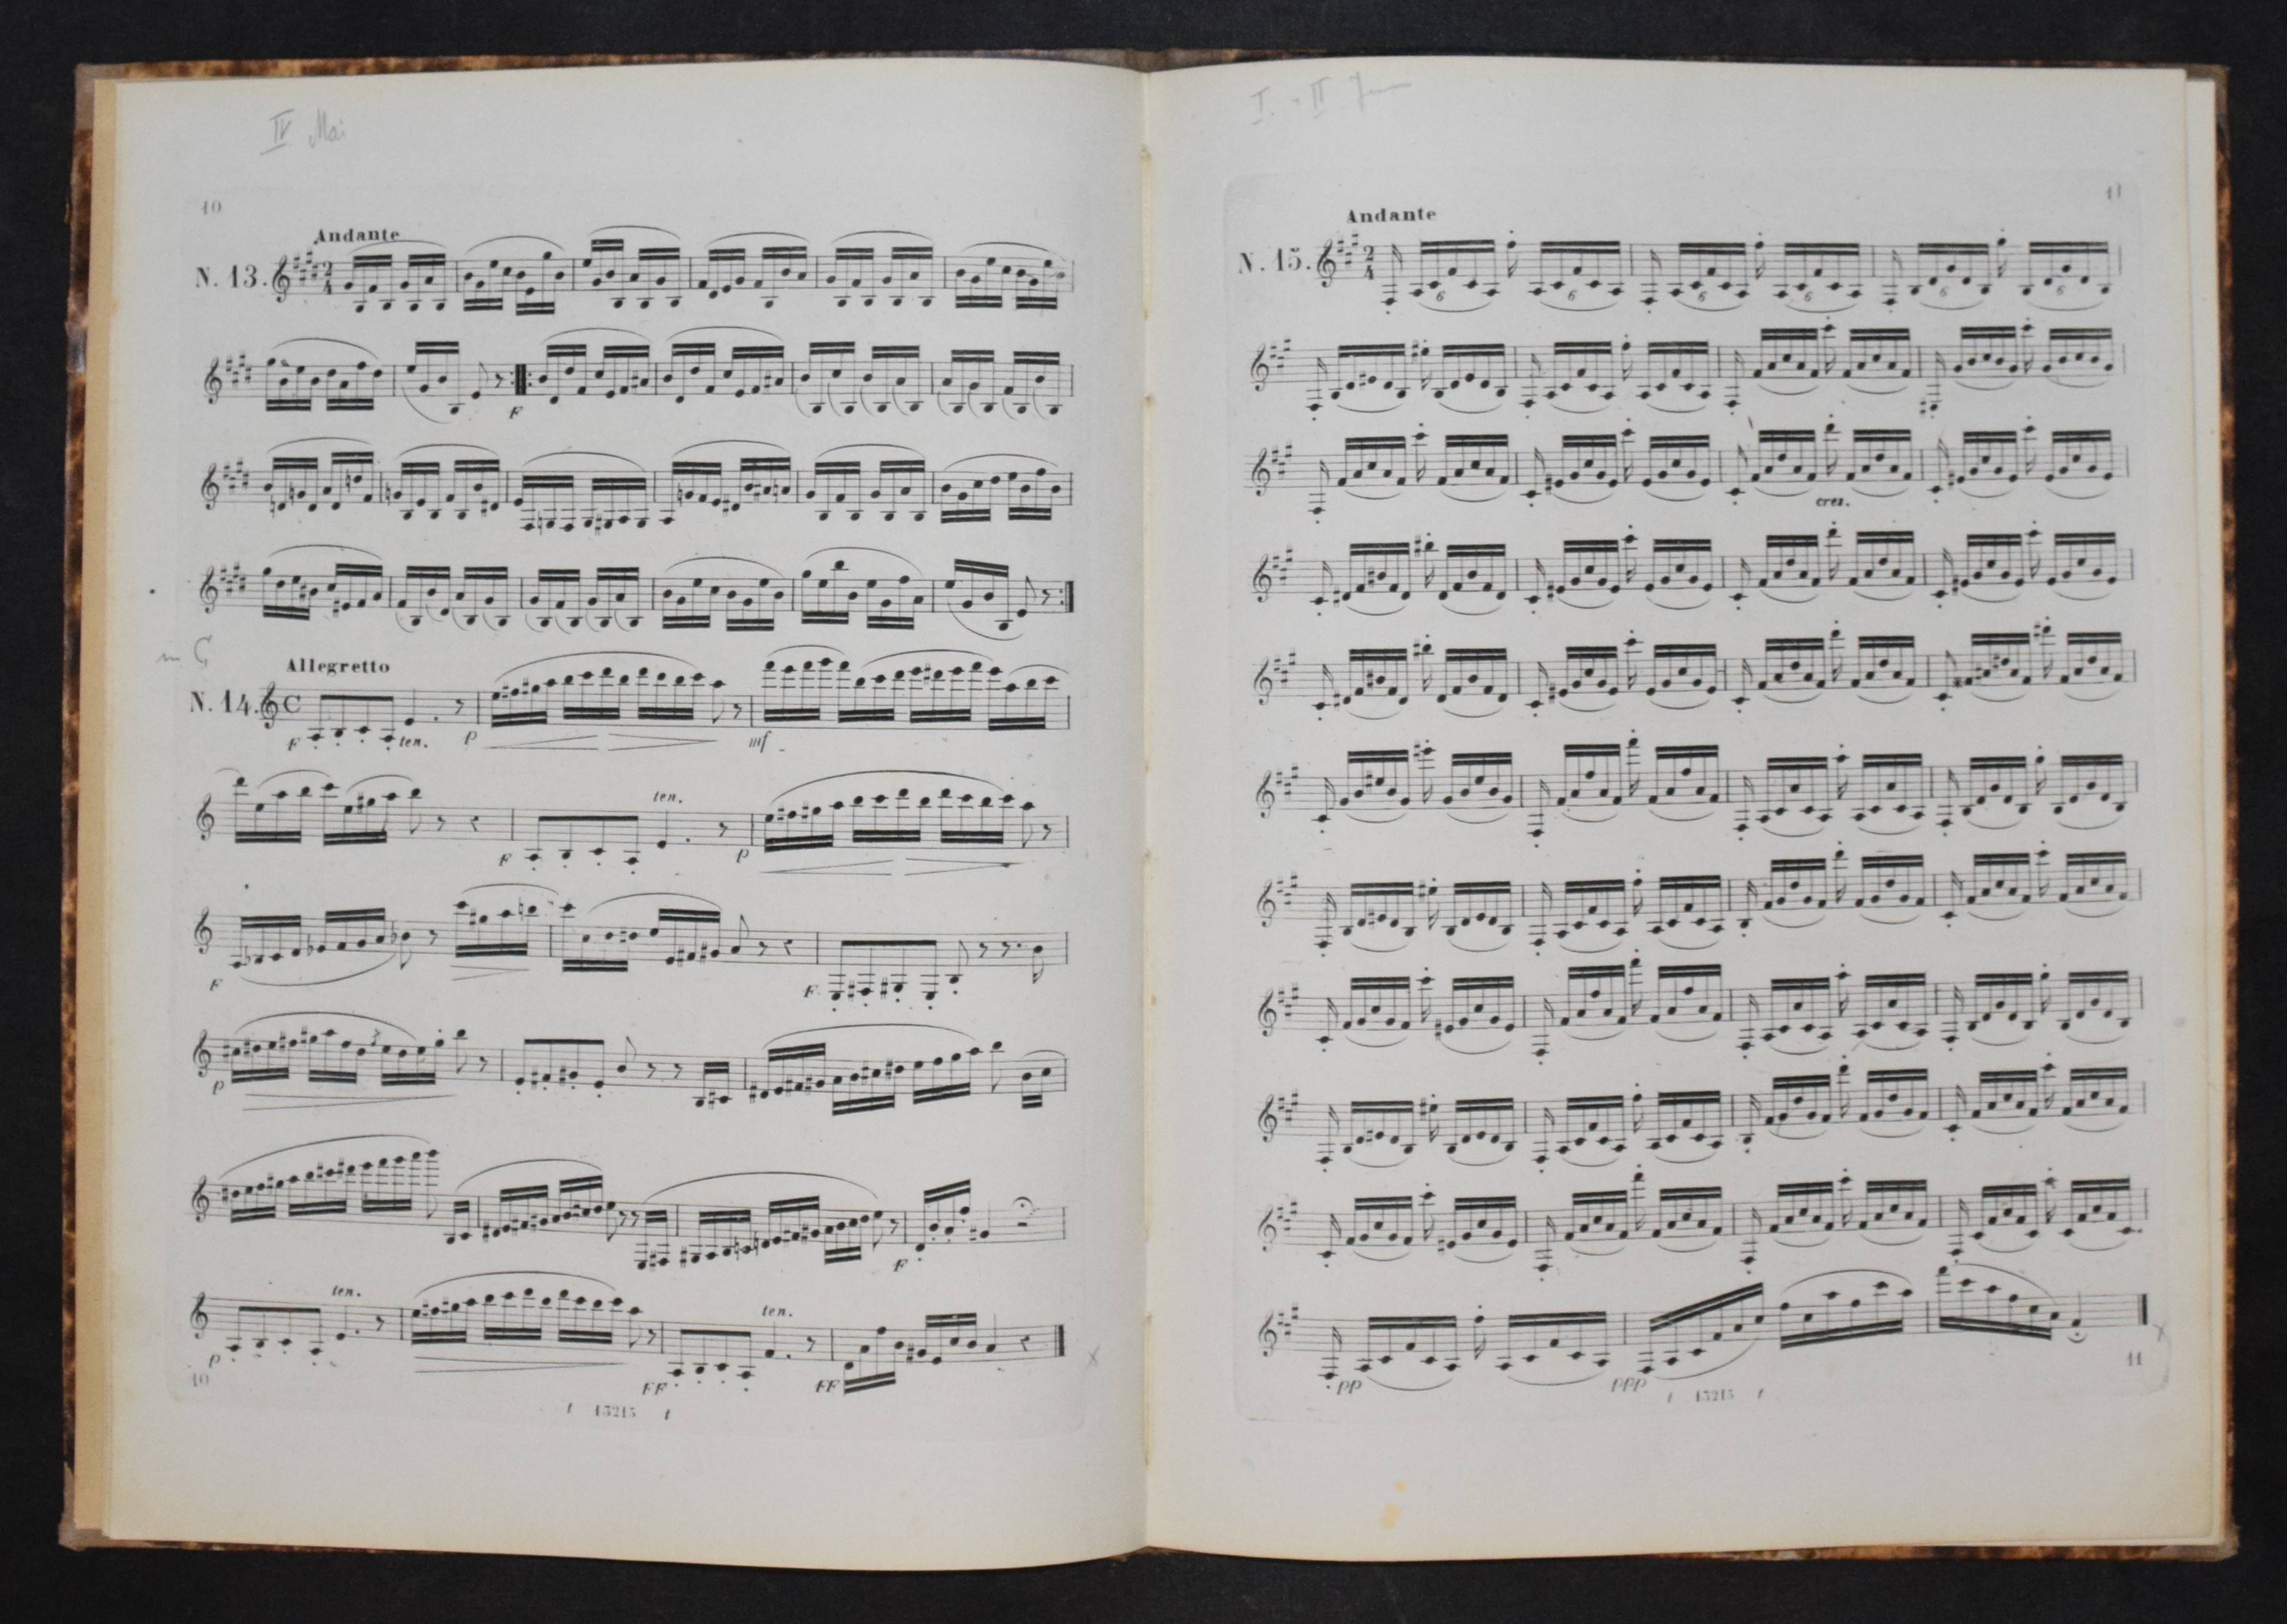 IV Mai
10
Andante
N. 13.
F
in G
Allegretto
N. 14.
F ten. p mf
ten.
F p
F F
p
F
ten. ten.
p FF FF
10
t 13215 t
I. - II Jun
11
Andante
N. 15.
6 6 6 6 6 6
cres.
pp ppp
11
t 13215 t